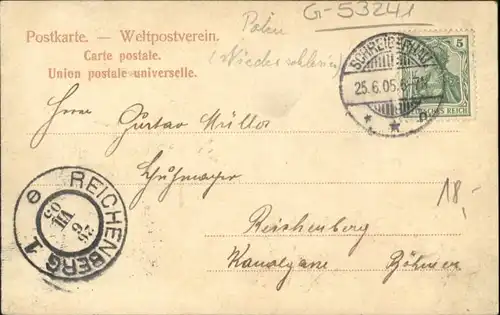 G-53241
Polen
(Niederschlesien)
Postkarte. — Weltpostverein.
Carte postale.
Union postale universelle.
SCHREIBERHAU
25.6.05.
5
REICH
Herrn Gustav Müller
Reichenberg
Böhmen
18,-
REICHENBERG 1
26
6
05
e